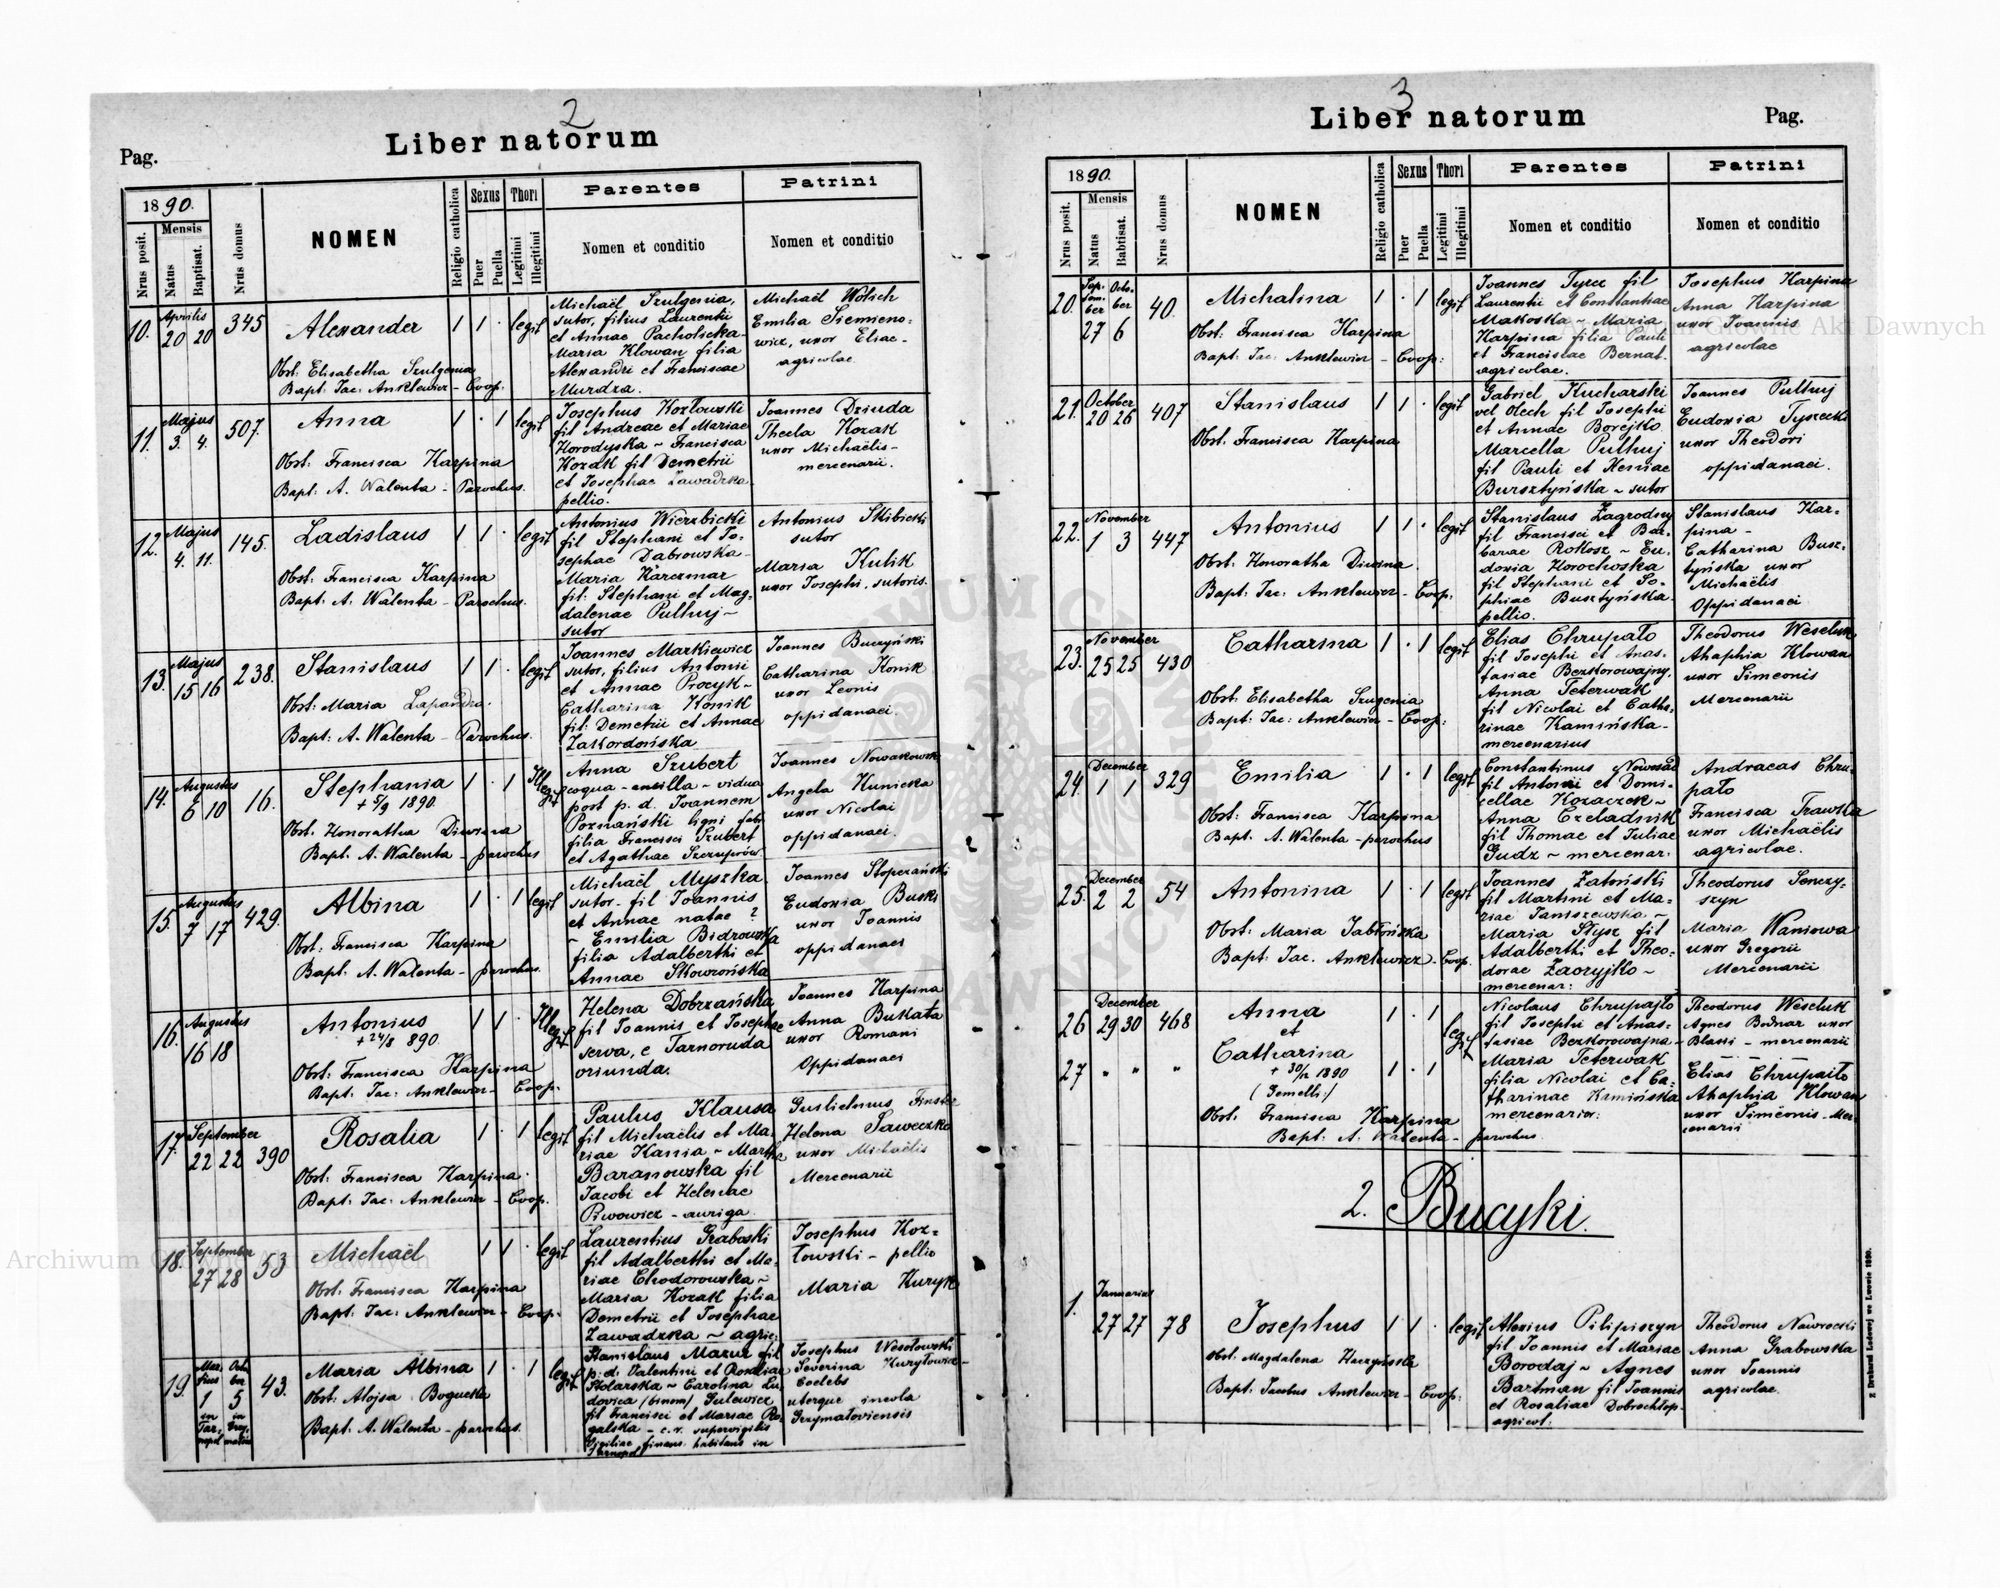 2
Liber natorum
Pag.
1890.
Mensis
Nrus posit.
Natus
Baptisat.
Nrus domus
NOMEN
Religio catholica
Sexus
Puer
Puella
Thori
Legitimi
Illegitimi
Parentes
Nomen et conditio
Patrini
Nomen et conditio
10. Aprilis 20 20 345 Alexander 1 1 · legit
Obst: Elisabetha Szulgenia
Bapt: Jac: Anklewicz - Coop.
Michaël Szulgenia,
sutor, filius Laurentii
et Annae Pacholicka
Maria Klowan filia
Alexandri et Franciscae
Murdza.
Michaël Wolich
Emilia Siemieno-
wicz, uxor Eliae -
agricolae
11. Majus 3. 4. 507. Anna 1 · 1 legit
Obst: Francisca Karpina
Bapt: A. Walenta - Parochus.
Josephus Kozłowski
fil Andreae et Mariae
Horodyska ~ Francisca
Kozak fil Demetrii
et Josephae Zawadzka
pellio.
Joannes Dziuda
Thecla Kozak
uxor Michaëlis -
mercenarii.
12. Majus 4. 11. 145. Ladislaus 1 1 · legit
Obst: Francisca Karpina
Bapt: A. Walenta - Parochus.
Antonius Wierzbicki
fil Stephani et Jo-
sephae Dąbrowska -
Maria Karczmar
fil: Stephani et Mag-
dalenae Pulhuj ~
sutor
Antonius Skibicki
sutor
Maria Kulik
uxor Josephi, sutoris.
13. Majus 15 16 238. Stanislaus 1 1 · legit
Obst: Maria Lapandra.
Bapt: A. Walenta - Parochus.
Joannes Markiewicz
sutor, filius Antonii
et Annae Procyk -
Catharina Konik
fil: Demetrii et Annae
Zakordońska
Joannes Buczyński
Catharina Konik
uxor Leonis
oppidanaei.
14. Augustus 6 10 16. Stephania 1 · 1 Illegit
+ 5/9 1890.
Obst. Honoratha Diwina
Bapt. A. Walenta - parochus
Anna Szubert
coqua - ancilla - vidua
post p. d. Joannem
Poznański ligni fabr
filia Francisci Szubert
et Agathae
Joannes Nowakowski
Angela Kunicka
uxor Nicolai
oppidanaei.
15. Augustus 7 17 429. Albina 1 · 1 legit
Obst: Francisca Karpina
Bapt. A. Walenta - parochus.
Michaël Myszka
sutor - fil Joannis
et Annae natae ?
~ Emilia Bidrowska
filia Adalberthi et
Annae Skowrońska
Joannes Stoperański
Eudoxia Buski
uxor Joannis
oppidanaei
16. Augustus 16 18 Antonius 1 1 · Illegit
+ 24/8 890.
Obst: Francisca Karpina
Bapt: Jac: Anklewicz - Coop.
Helena Dobrzańska
fil Joannis et Josephae
serva, e Tarnoruda
oriunda.
Joannes Karpina
Anna Bukata
uxor Romani
Oppidanaei
17. September 22 22 390 Rosalia 1 · 1 legit
Obst: Francisca Karpina.
Bapt: Jac: Anklewicz - Coop.
Paulus Klausa
fil Michaëlis et Ma-
riae Kania ~ Martha
Baranowska fil
Jacobi et Helenae
Piwowicz - auriga.
Guslielmus Finster
Helena Saweczko
uxor Michaëlis
Mercenarii
18. September 27 28 53 Michaël 1 1 · legit
Obst: Francisca Karpina
Bapt: Jac: Anklewicz - Coop.
Laurentius Graboski
fil Adalberthi et Ma-
riae Chodorowska ~
Maria Kozak filia
Demetrii et Josephae
Zawadzka ~ agric:
Josephus Koz=
łowski - pellio
Maria Kuryk
19. Martius 1 in Tarnopol October 5 in Grzymałów 43. Maria Albina 1 · 1 legit
Obst: Alojsa Bogucka
Bapt. A. Walenta - parochus.
Stanislaus Mazur fil
p: d: Valentini et Rosaliae
Stolarska ~ Carolina Lu-
dovica (binom) Gulewicz
fil Francisci et Mariae Ro-
galska - c. r. supervigilis
vigiliae finans. habitans in
Tarnopol
Josephus Wesołowski
Severina Kuryłowicz -
Coelebs
uterque incola
Grzymałoviensis
3
Liber natorum
Pag.
1890.
Mensis
Nrus posit.
Natus
Babtisat.
Nrus domus
NOMEN
Religio catholica
Sexus
Puer
Puella
Thori
Legitimi
Illegitimi
Parentes
Nomen et conditio
Patrini
Nomen et conditio
20. September 27 October 6 40. Michalina 1 · 1 legit
Obst: Francisca Karpina
Bapt: Jac: Anklewicz - Coop:
Joannes Tyrcz fil
Laurentii et Constanthiae
Makoska ~ Maria
Karpina filia Pauli
et Franciscae Bernat.
agricolae.
Josephus Karpina
Anna Karpina
uxor Joannis
agricolae
21. October 20 26 407 Stanislaus 1 1 · legit
Obst. Francisca Karpina
Gabriel Kucharski
vel Olech fil Josephi
et Annae Borejko
Marcella Pulhuj
fil Pauli et Xeniae
Bursztyńska ~ sutor
Joannes Pulhuj
Eudoxia Tyrecka
uxor Theodori
oppidanaei.
22. November 1 3 447 Antonius 1 1 · legit
Obst: Honoratha Diwina.
Bapt: Jac: Anklewicz - Coop:
Stanislaus Zagrodny
fil Francisci et Bar-
barae Rokosz ~ Eu-
doxia Horochoska
fil Stephani et So-
phiae Busztyńska.
pellio.
Stanislaus Kar-
pina -
Catharina Busz-
tyńska uxor
Michaëlis
Oppidanaei
23. November 25 25 430 Catharina 1 · 1 legit
Obst: Elisabetha Szugenia
Bapt: Jac: Anklewicz - Coop:
Elias Chrupało
fil Josephi et Anas-
tasiae Bezkorowajny.
Anna Teterwak
fil Nicolai et Catha-
rinae Kamińska -
mercenarius
Theodorus Weseluk
Ahaphia Klowan
uxor Simeonis
Mercenarii
24. December 1 1 329 Emilia 1 · 1 legit
Obst: Francisca Karpina
Bapt. A. Walenta - parochus
Constantinus Nowsad
fil Antonii et Domi-
cellae Kozaczek ~
Anna Czeladnik
fil Thomae et Juliae
Gudz ~ mercenar:
Andraeas Chru-
pało
Francisca Trawska
uxor Michaëlis
agricolae.
25. December 2 2 54 Antonina 1 · 1 legit
Obst: Maria Jabłońska
Bapt: Jac. Anklewicz - Coop.
Joannes Zatoński
fil Martini et Ma-
riae Janiszewska ~
Maria Słysz fil
Adalberthi et Theo-
dorae Zaozyjko ~
mercenar:
Theodorus Senczy-
szyn
Maria Waniowa
uxor Gregorii
Mercenarii
26 December 29 30 468 Anna 1 · 1 legit
et
27 " " " Catharina 1 · 1
+ 30/12 1890
(Gemelli:)
Obst. Francisca Karpina
Bapt: A. Walenta - parochus.
Nicolaus Chrupajło
fil Josephi et Anas-
tasiae Bezkorowajna -
Maria Teterwak
filia Nicolai et Ca-
tharinae Kamińska
mercenarior:
Theodorus Weseluk
Agnes Bodnar uxor
Blasii - mercenarii
Elias Chrupaiło
Ahaphia Klowan
uxor Simeonis - Mer-
cenarii
2. Bucyki.
1. Januarius 27 27 78 Josephus 1 1 · legit
Obst. Magdalena Haczyńska
Bapt: Jacobus Anklewicz - Coop:
Alexius Pilipiszyn
fil Joannis et Mariae
Borodaj ~ Agnes
Bartman fil Joannis
et Rosaliae Dobrochłop-
agricol:
Theodorus Nawrocki
Anna Grabowska
uxor Joannis
agricolae.
Z Drukarni Ludowej we Lwowie 1890.
Archiwum Główne Akt Dawnych
Archiwum Główne Akt Dawnych
ARCHIWUM GŁÓWNE AKT DAWNYCH